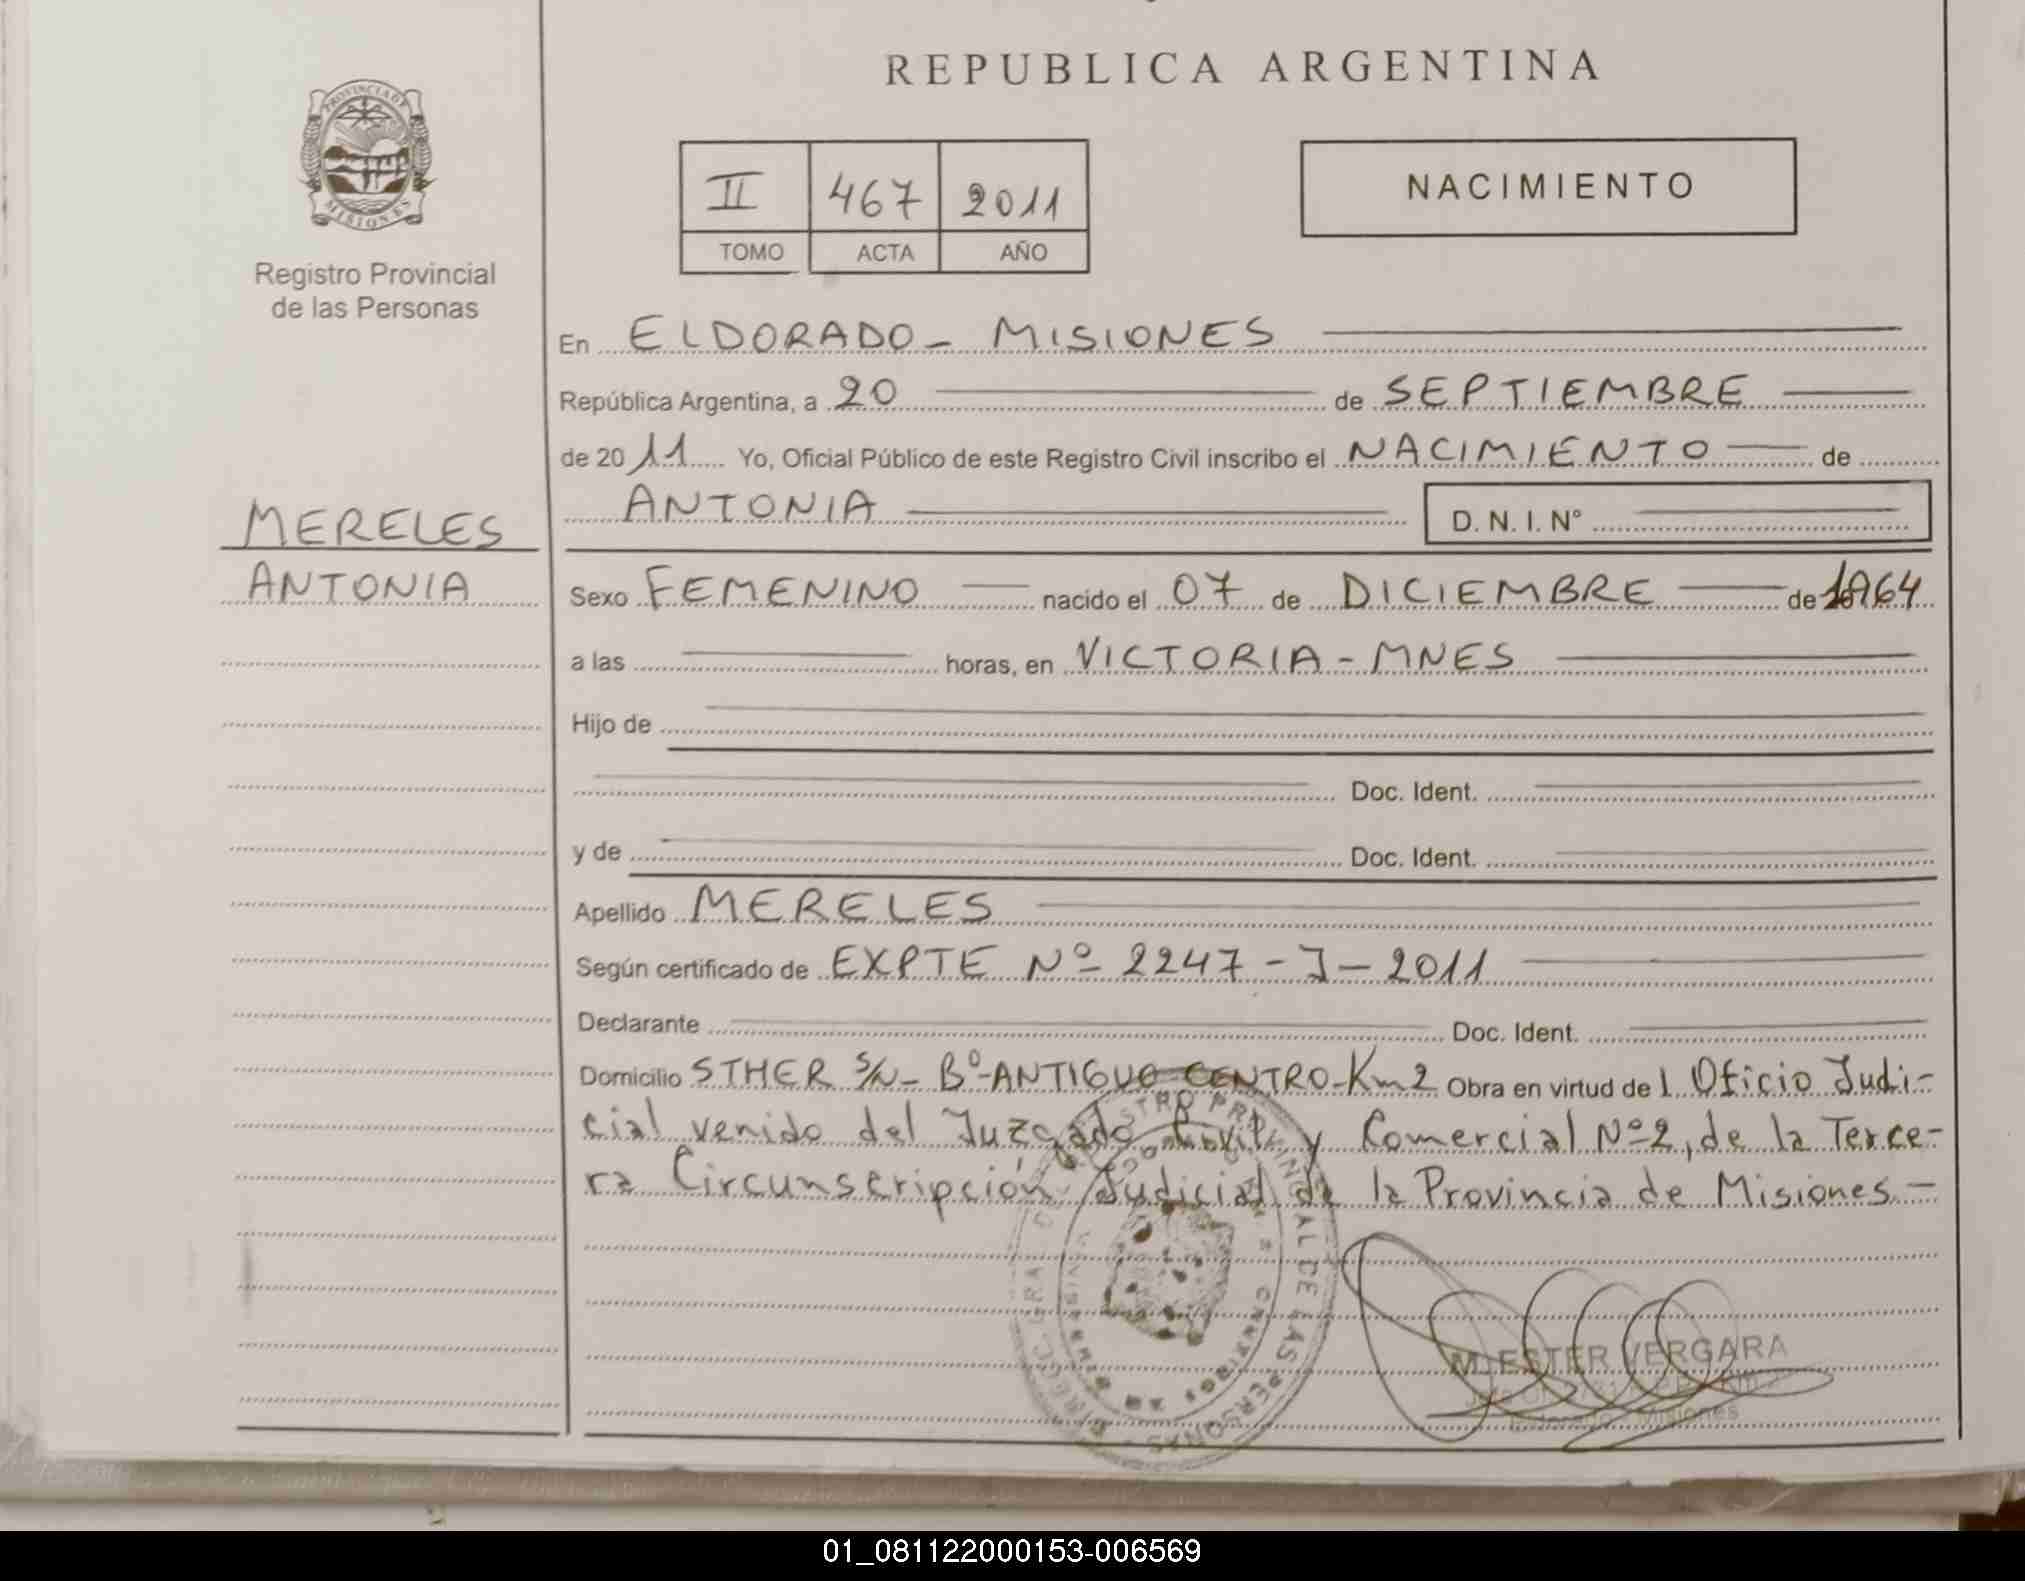 REPUBLICA ARGENTINA
PROVINCIA DE
MISIONES
Registro Provincial
de las Personas
II 467 2011
TOMO ACTA AÑO
NACIMIENTO
En ELDORADO - MISIONES
República Argentina, a 20 de SEPTIEMBRE
de 2011 Yo, Oficial Público de este Registro Civil inscribo el NACIMIENTO de
ANTONIA D. N. I. N°
MERELES
ANTONIA
Sexo FEMENINO nacido el 07 de DICIEMBRE de 1964
a las horas, en VICTORIA - MNES
Hijo de
Doc. Ident.
y de Doc. Ident.
Apellido MERELES
Según certificado de EXPTE Nº 2247 - J - 2011
Declarante Doc. Ident.
Domicilio STHER S/N - Bº ANTIGUO CENTRO - Km 2 Obra en virtud de l Oficio Judi-
cial venido del Juzgado Civil y Comercial Nº 2, de la Terce-
ra Circunscripción Judicial de la Provincia de Misiones -
REGISTRO PROVINCIAL DE LAS PERSONAS
M. ESTER VERGARA
Eldorado - Misiones
01_081122000153-006569